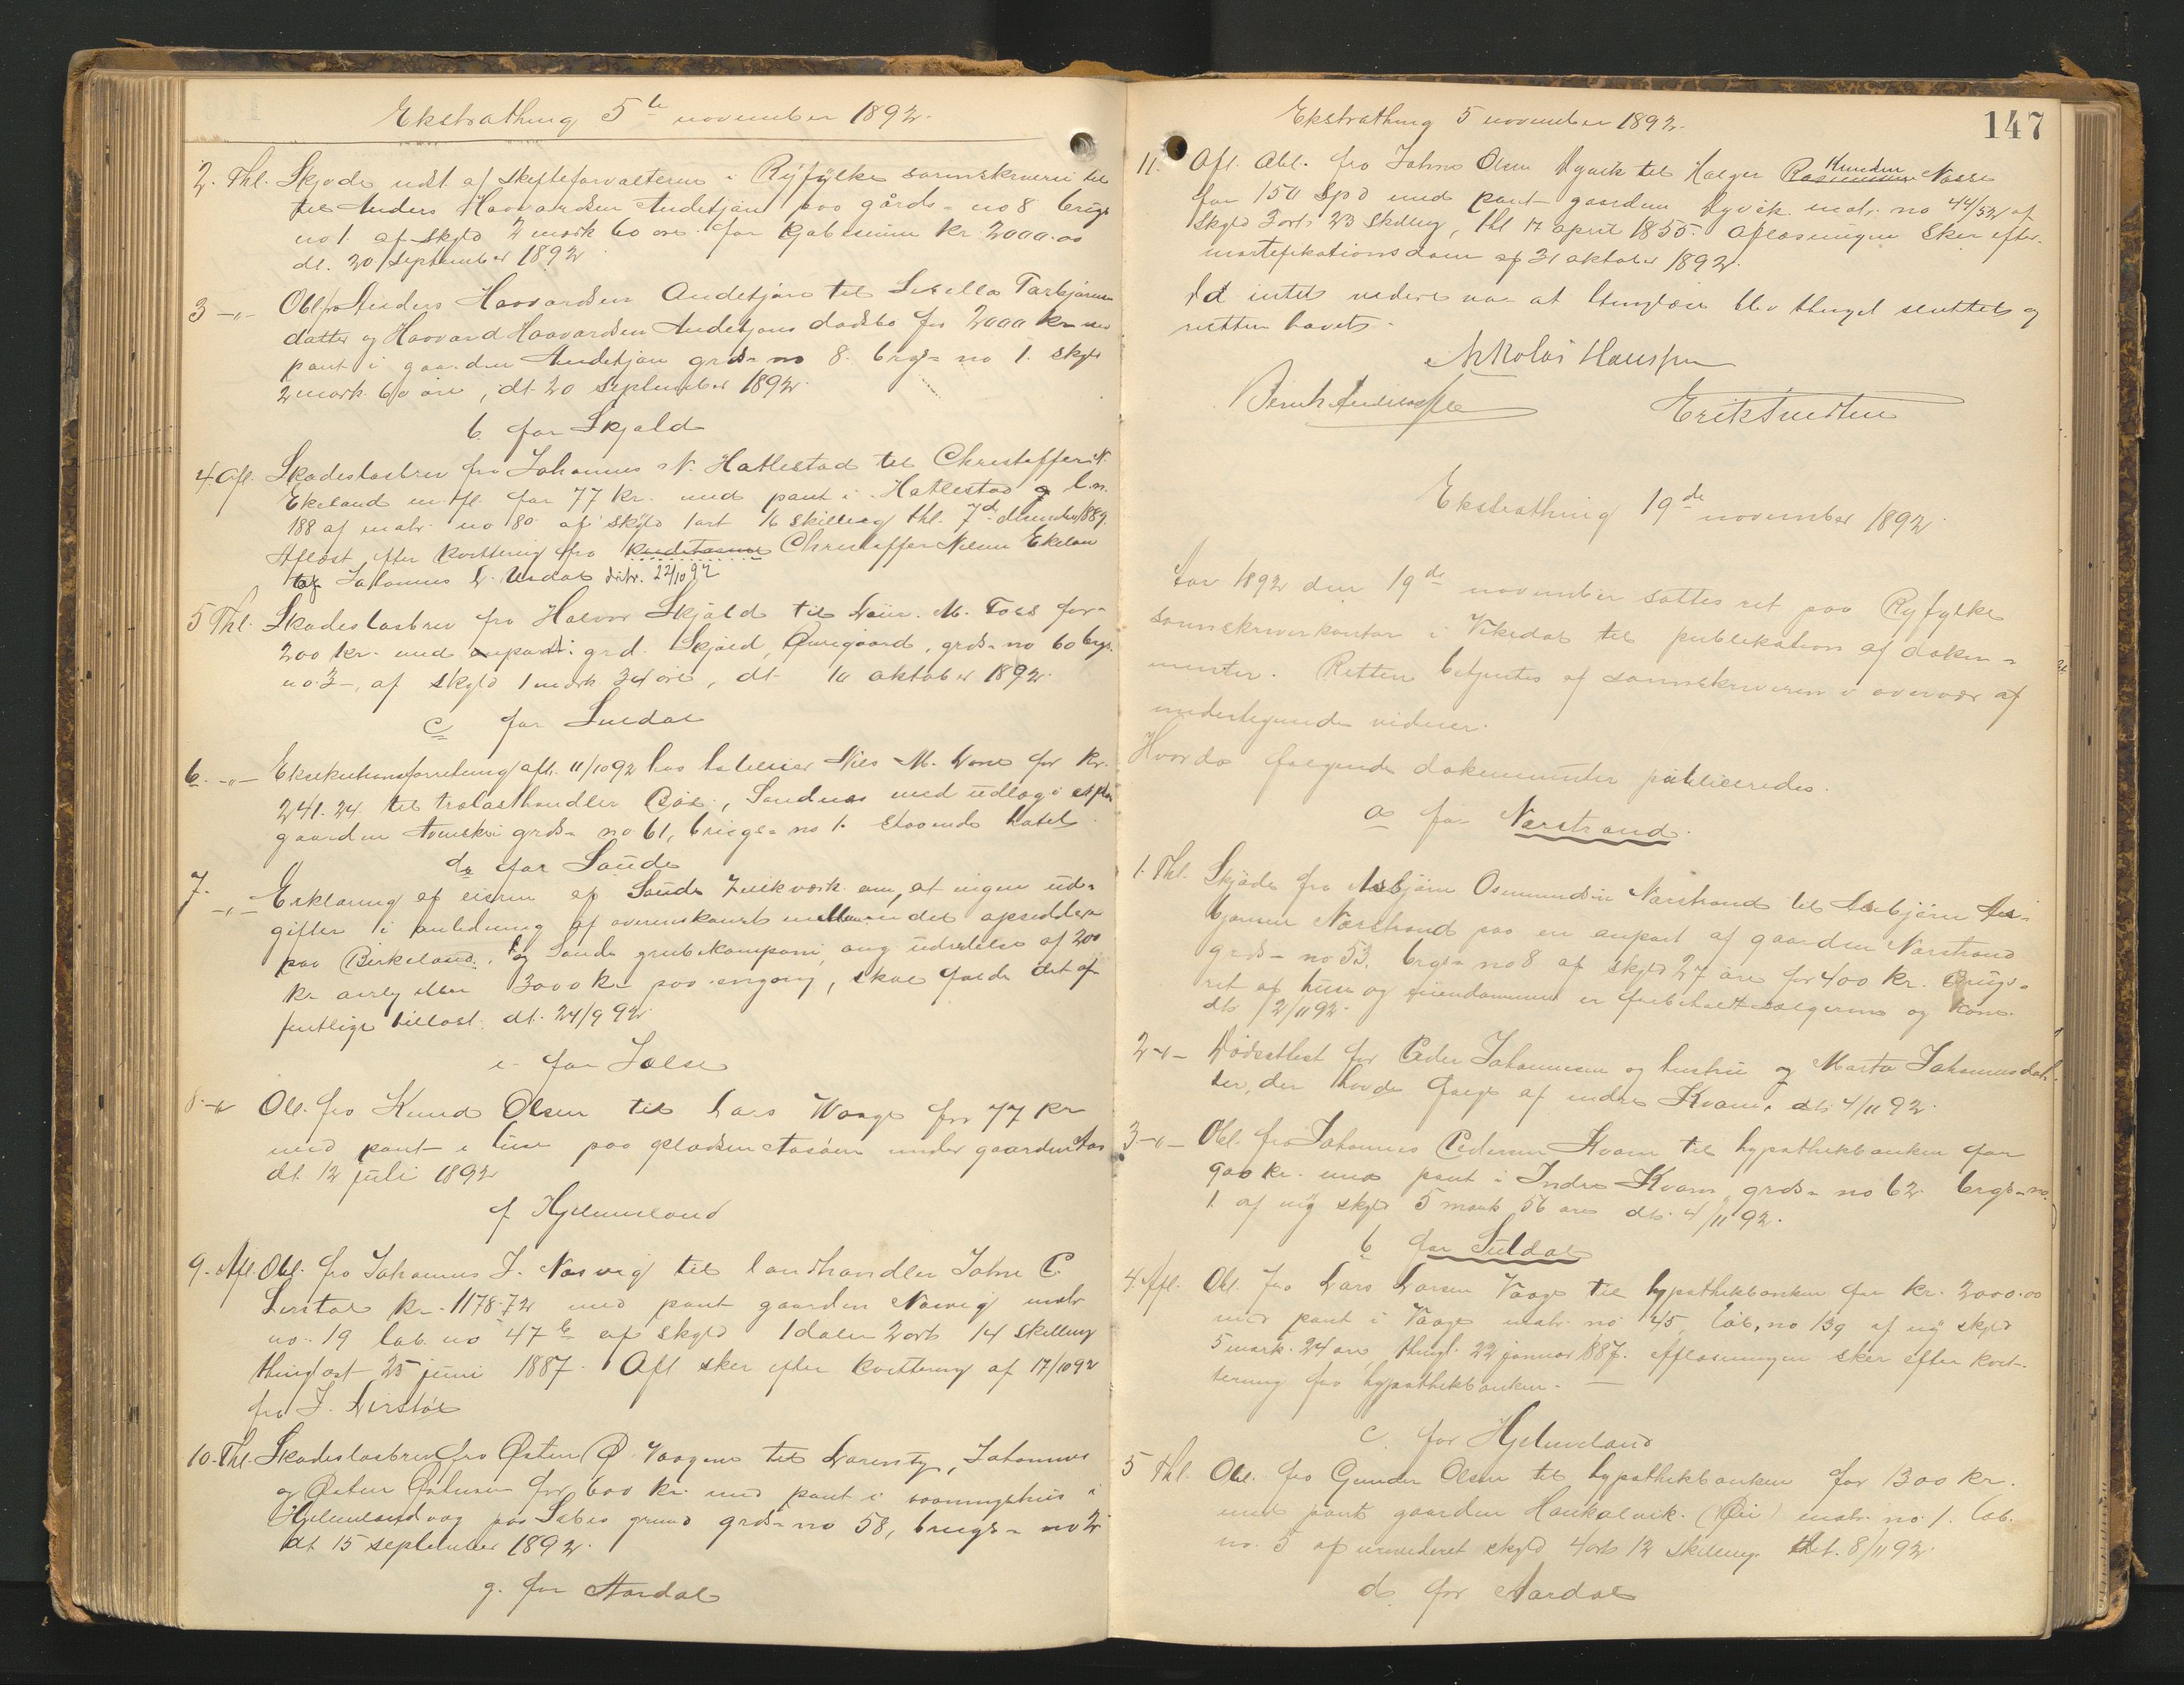 Ekstrathing 5te november 1892.
2. Thl. Skjøde udst. af skifteforvalteren i Ryfylke sorenskriveri til
til Anders Haavardsen Andetjän paa gårds-no 8 brugs
no 1. af skyld 2 mark 60 øre for kjøbesum kr. 2000.00
dt. 20 september 1892
3 -"- Obl. fra Anders Haavardsen Andetjørn til Torbjørns
datter og Haavard Haavardsen Andetjøns dødsbo for 2000 kr. med
pant i gaarden Andetjøn grds-no 8. brgs-no 1. skyld
2 mark 60 øre, dt. 20 september 1892.
b. for Skjold
4. Afl. Skadesløsbrev fra Johannes N. Hatlestad til Christoffer N.
Ekeland m. fl. for 77 kr. med pant i Hatlestad g l.n.
188 af matr. no 80 af skyld 1 ort 16 skilling thl. 7d december 1889.
Aflæst efter kvittering fra Christoffer Nilsen Ekelan
Johannes L. Usdal ditr. 22/10 92
5 Thl. Skadesløsbrev fra Halvor Skjold til M. Toes for
200 kr. med anpart i grd. Skjold, Øvregaard, grds-no 60 brgs.
no. 3 -, af skyld 1 mark 34 øre, dt. 10 oktober 1892.
c for Suldal
6. -"- Eksekutionsforretning afh. 11/10 92 hos hoteleier Nils M. for kr.
241.24 til trælasthandler Bøe, Sandnes med udlæg i et paa
gaarden grds-no 61, brugs-no 1. staaende hotel.
d. for Saude
7. -"- Erklæring af eieren af Saude Zinkværk om, at ingen ud-
gifter i anledning af overenskomst mellem det opsidderne
paa Birkeland og Saude grubekompani, ang. udredelse af 200
kr. aarlig eller 3000 kr. paa engang, skal falde det of-
fentlige tillast. dt. 24/9 92.
e. for Jelse
8. -"- Obl. fra Knud Olsen til Lars Waage for 77 kr
med pant i hus paa pladsen under gaarden
dt. 12 juli 1892
f. Hjelmeland
9. Afl. Obl. fra Johannes J. Nøsvig til landhandler John C.
kr. 1178.72 med pant gaarden Nøsvig matr.
no. 19 løb. no 47 b af skyld 1 daler 2 ort 14 skilling
thinglæst 25 juni 1887. Afl. sker efter kvittering af 17/10 92
fra J.
10. Thl. Skadesløsbrev fra Østen Ø. Vaagene til Johannes
og Østen Østensen for 600 kr. med pant i vaaningshus i
Hjelmelandvaag paa Sæbøs grund grds-no 58, brugs-no 2
dt. 15 september 1892.
g. for Aardal
Ekstrathing 5 november 1892.
147
11. Afl. Obl. fra Johns Olsen Nyvik til Holger Rasmussen Knudsen
for 150 Spd med pant gaarden Nyvik matr. no 44/52 af
skyld 3 ort 23 skilling, thl. 17 april 1855. Aflæsningen sker efter
mortifikationsdom af 31 oktober 1892.
Da intet videre var at tinglæse blev thinget sluttet og
retten hævet.
Nikolai Hanssen
Erik Knudsen
Ekstrathing 19de november 1892
Aar 1892 den 19de november sattes ret paa Ryfylke
sorenskriverkontor i Vikedal til publikation af doku-
menter. Retten betjentes af sorenskriveren i overvær af
undertegnede vidner.
Hvorda følgende dokumenter publiceredes.
a for Nærstrand.
1. Thl. Skjøde fra Asbjørn Osmundsen Nærstrand til Asbjørn As-
bjørnsen Nærstrand paa en anpart af gaarden Nærstrand
grds-no 53. brgs-no 8 af skyld 27 øre for 400 kr. Brugs-
ret af huse og eiendommen er forbeholdt sælgeren og kone.
dt. 12/11 92.
2 -"- Dødsattest for Peder Johannesen og hustru og Marta Johannesdat-
ter, der havde fæige af indre Kvam, dt. 4/11 92.
3 -"- Obl. fra Johannes Pedersen Kvam til hypothekbanken for
900 kr. med pant i Indre Kvam, grds-no 62 brgs-no.
1 af ny skyld 5 mark 56 øre dt. 4/11 92.
b for Suldal
4. Afl. Obl. fra Lars Larsen Vaage til hypothekbanken for kr. 2000.00
med pant i Vaage matr. no 45, løb. no 139 af ny skyld
5 mark 24 øre, thingl. 22 januar 1887. Aflæsningen sker efter kvit-
tering fra hypothekbanken. —
c. for Hjelmeland
5 Thl. Obl. fra Gunder Olsen til hypothekbanken for 1300 kr.
med pant gaarden Haukalivik. (Øi) matr. no. 1. løb.
no. 5 af urevideret skyld 4 ort 12 skilling. dt. 8/11 92.
d. for Aardal